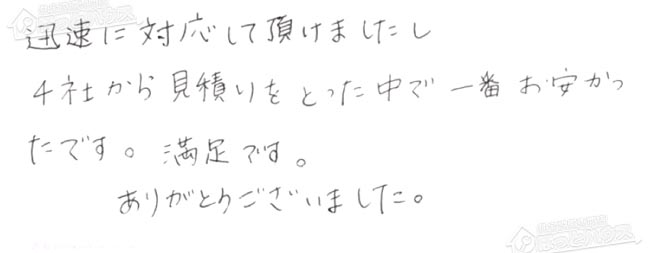 迅速に対応して頂けましたし
4社から見積りをとった中で一番お安かっ
たです。満足です。
ありがとうございました。